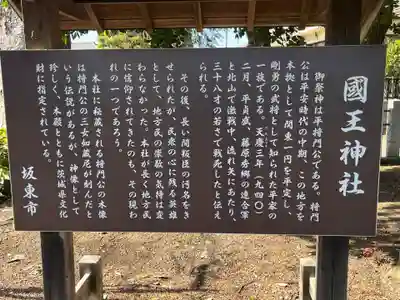 國王神社
御祭神は平将門公である。将門
公は平安時代の中期、この地方を
本拠として関東一円を平定し、
剛勇の武将として知られた平家の
一族である。天慶三年(九四〇)
二月、平貞盛、藤原秀郷の連合軍
と北山で激戦中、流れ矢にあたり、
三十八才の若さで戦死したと伝え
られる。
その後、長い間叛臣の汚名をき
せられたが、民衆の心に残る英雄
として、地方民の崇敬の気持は変
わらなかった。本社が長く地方民
に信仰されてきたのも、その現わ
れの一つであろう。
本社に秘蔵される将門公の木像
は将門公の三女如蔵尼が刻んだと
いう伝説があるが、神像として
珍しく、本殿とともに茨城県文化
財に指定されている。
坂東市